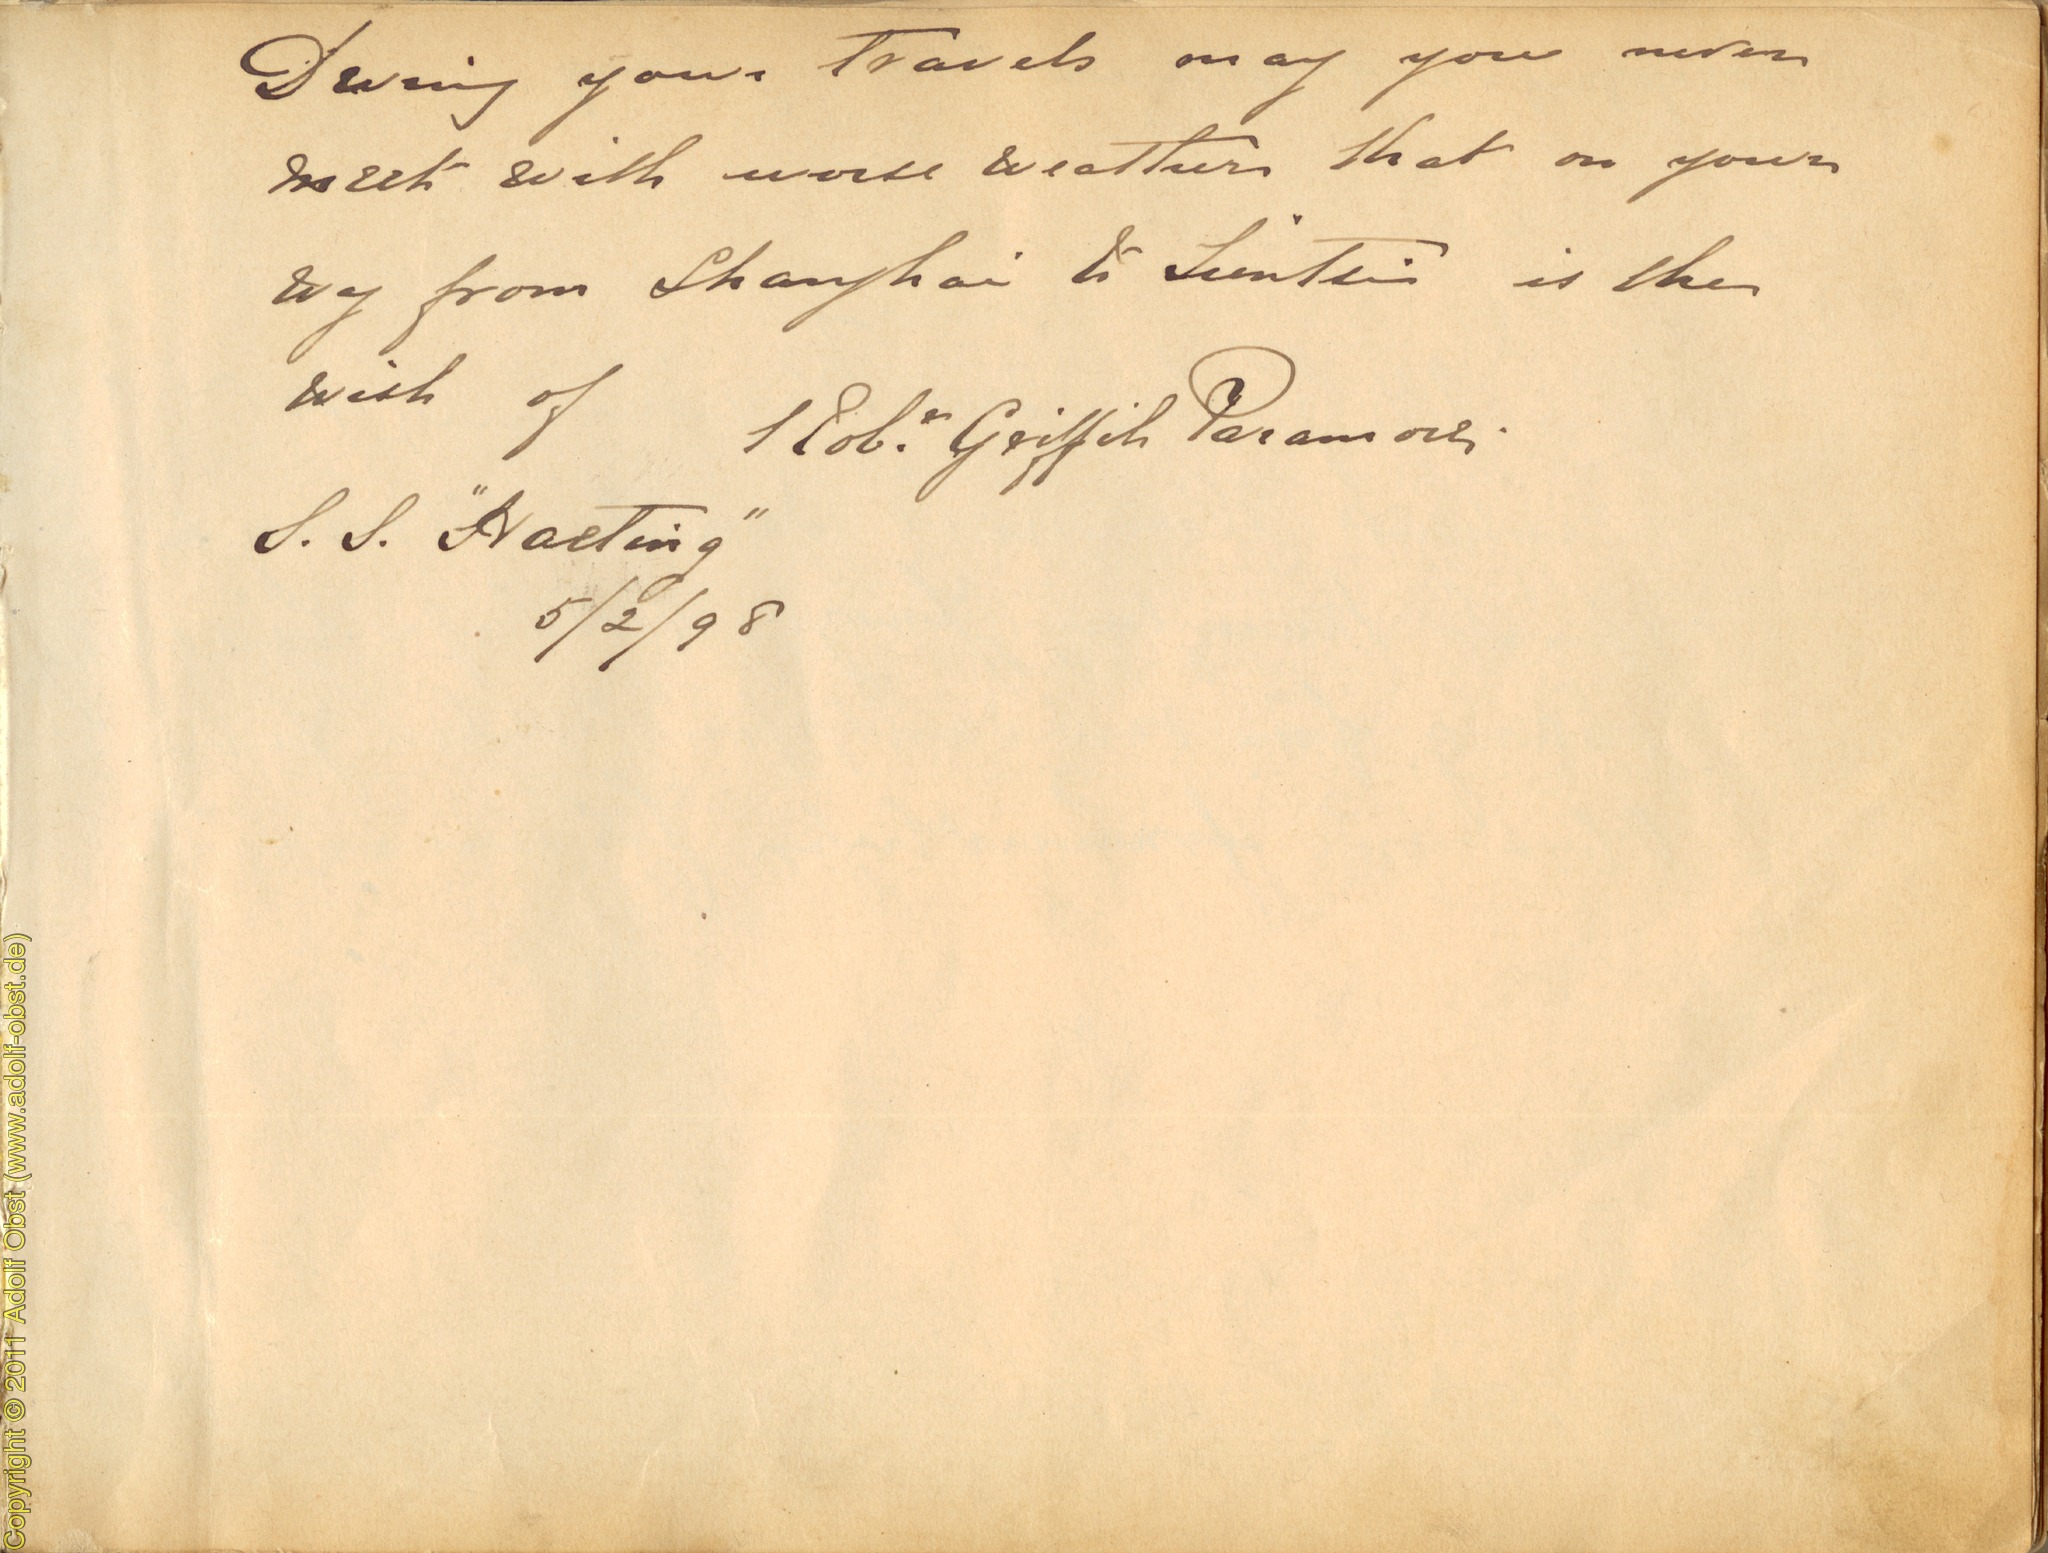 During your travels may you never
meet with worse weather that on your
wy from Shanghai to Tientsin is the
wish of Robt Griffith Paramore.
S. S. "Haeting"
5/2/98
Copyright © 2011 Adolf Obst (www.adolf-obst.de)